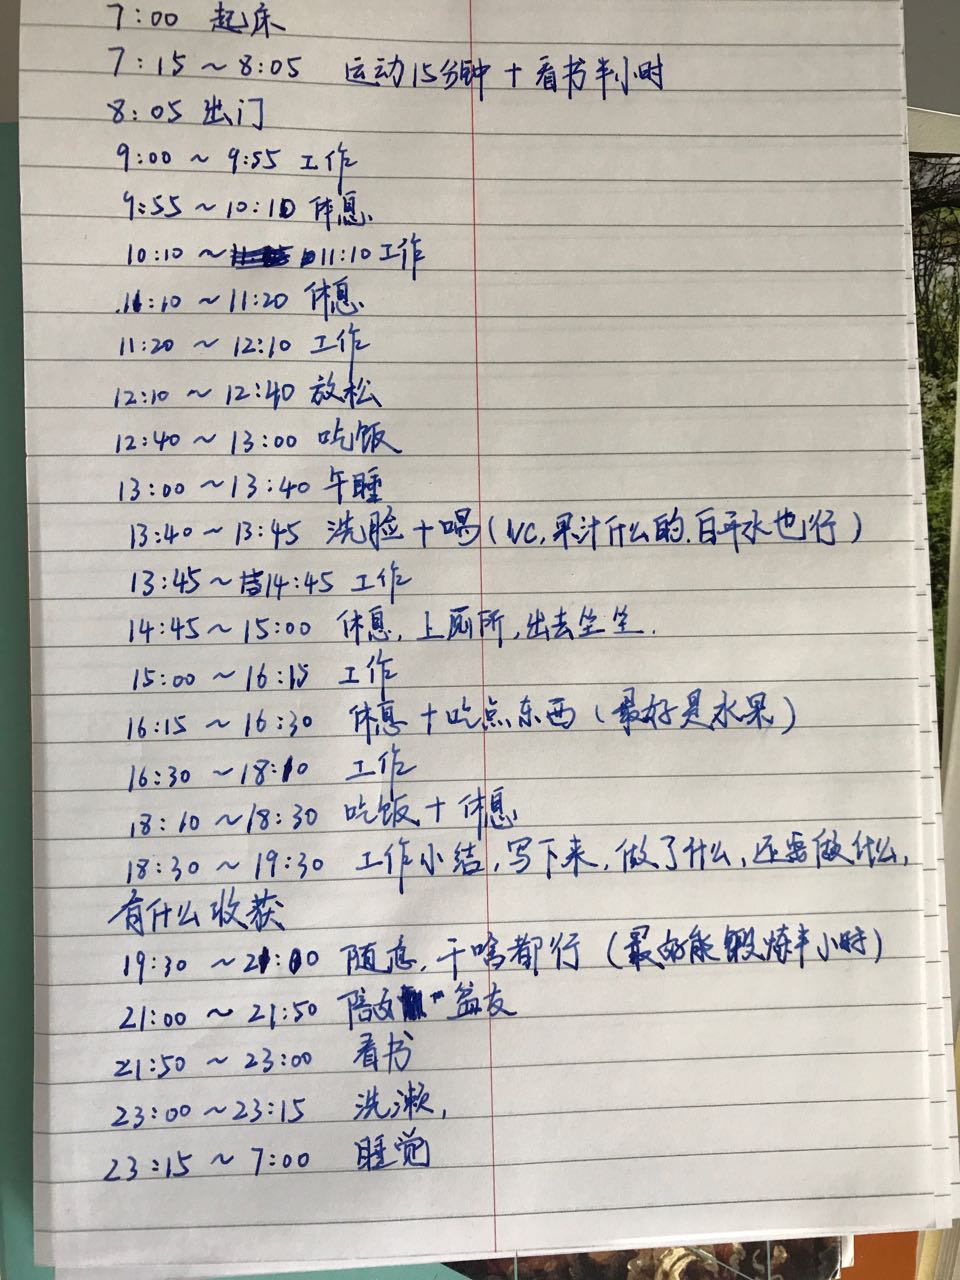 7:00 起床
7:15~8:05 运动15分钟+看书半小时
8:05 出门
9:00~9:55 工作
9:55~10:10 休息
10:10~11:10 工作
11:10~11:20 休息
11:20~12:10 工作
12:10~12:40 放松
12:40~13:00 吃饭
13:00~13:40 午睡
13:40~13:45 洗脸+喝(VC,果汁什么的.白开水也行)
13:45~14:45 工作
14:45~15:00 休息,上厕所,出去坐坐.
15:00~16:15 工作
16:15~16:30 休息+吃点东西(最好是水果)
16:30~18:10 工作
18:10~18:30 吃饭+休息
18:30~19:30 工作小结,写下来,做了什么,还需做什么,
有什么收获
19:30~21:00 随意,干啥都行(最好能锻炼半小时)
21:00~21:50 陪 益友
21:50~23:00 看书
23:00~23:15 洗漱,
23:15~7:00 睡觉